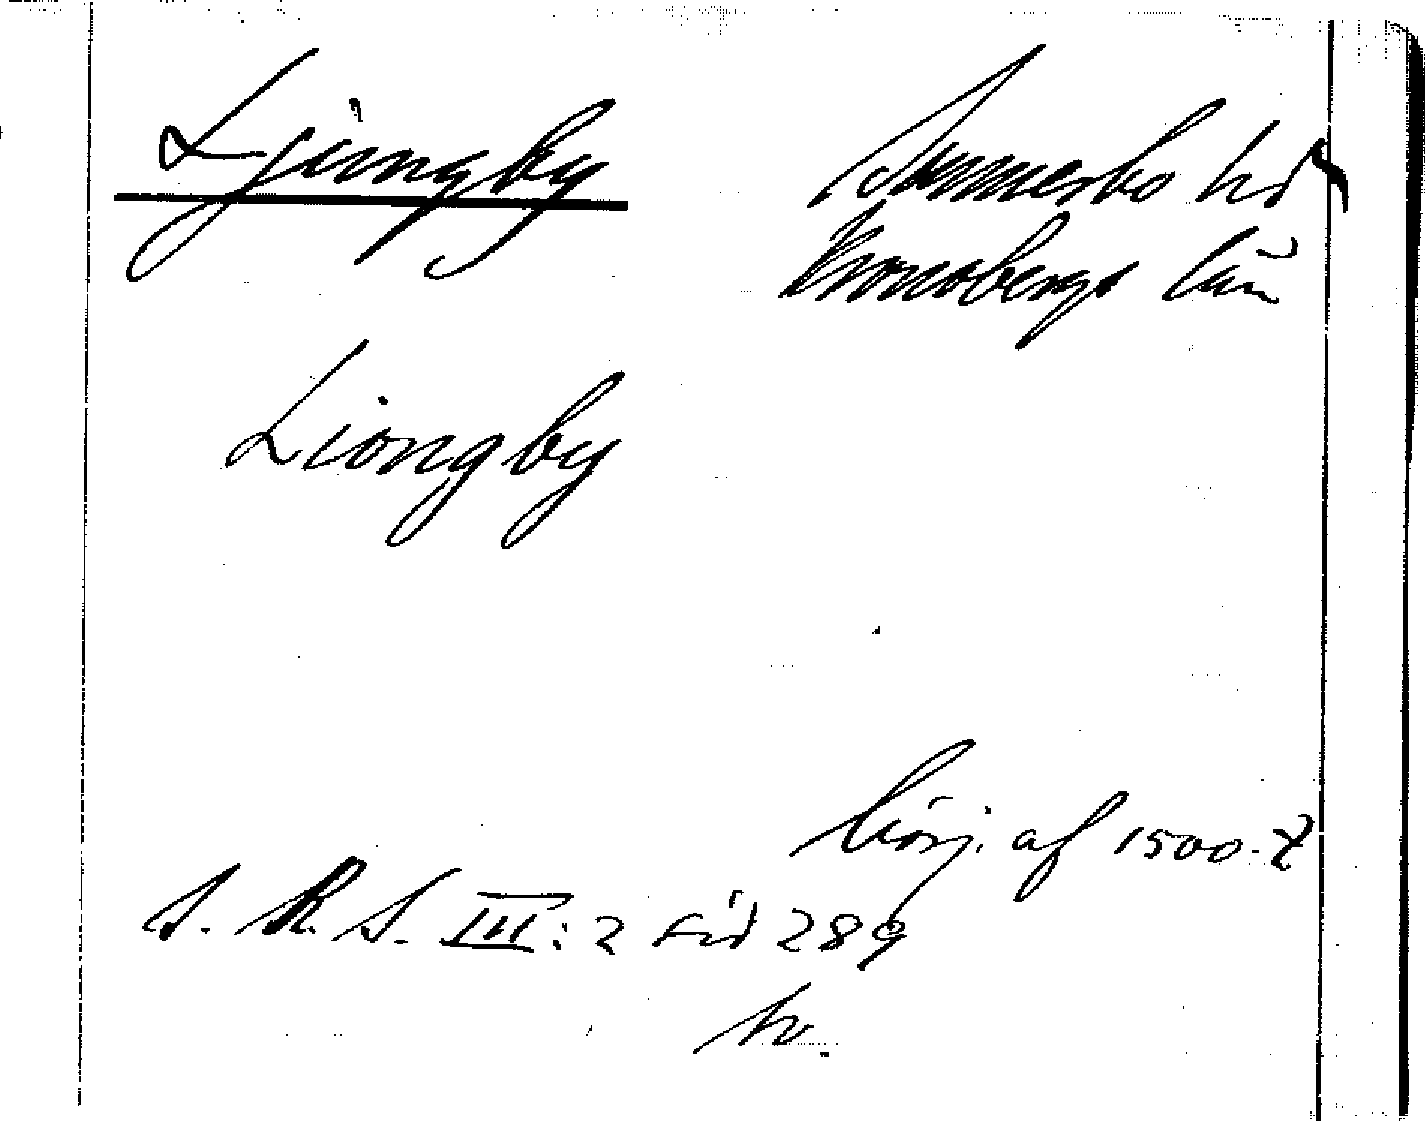 Ljungby
Sunnerbo hd
Kronobergs län
Liongby
börj. af 1500-t
S. R. S. III: 2 sid 289